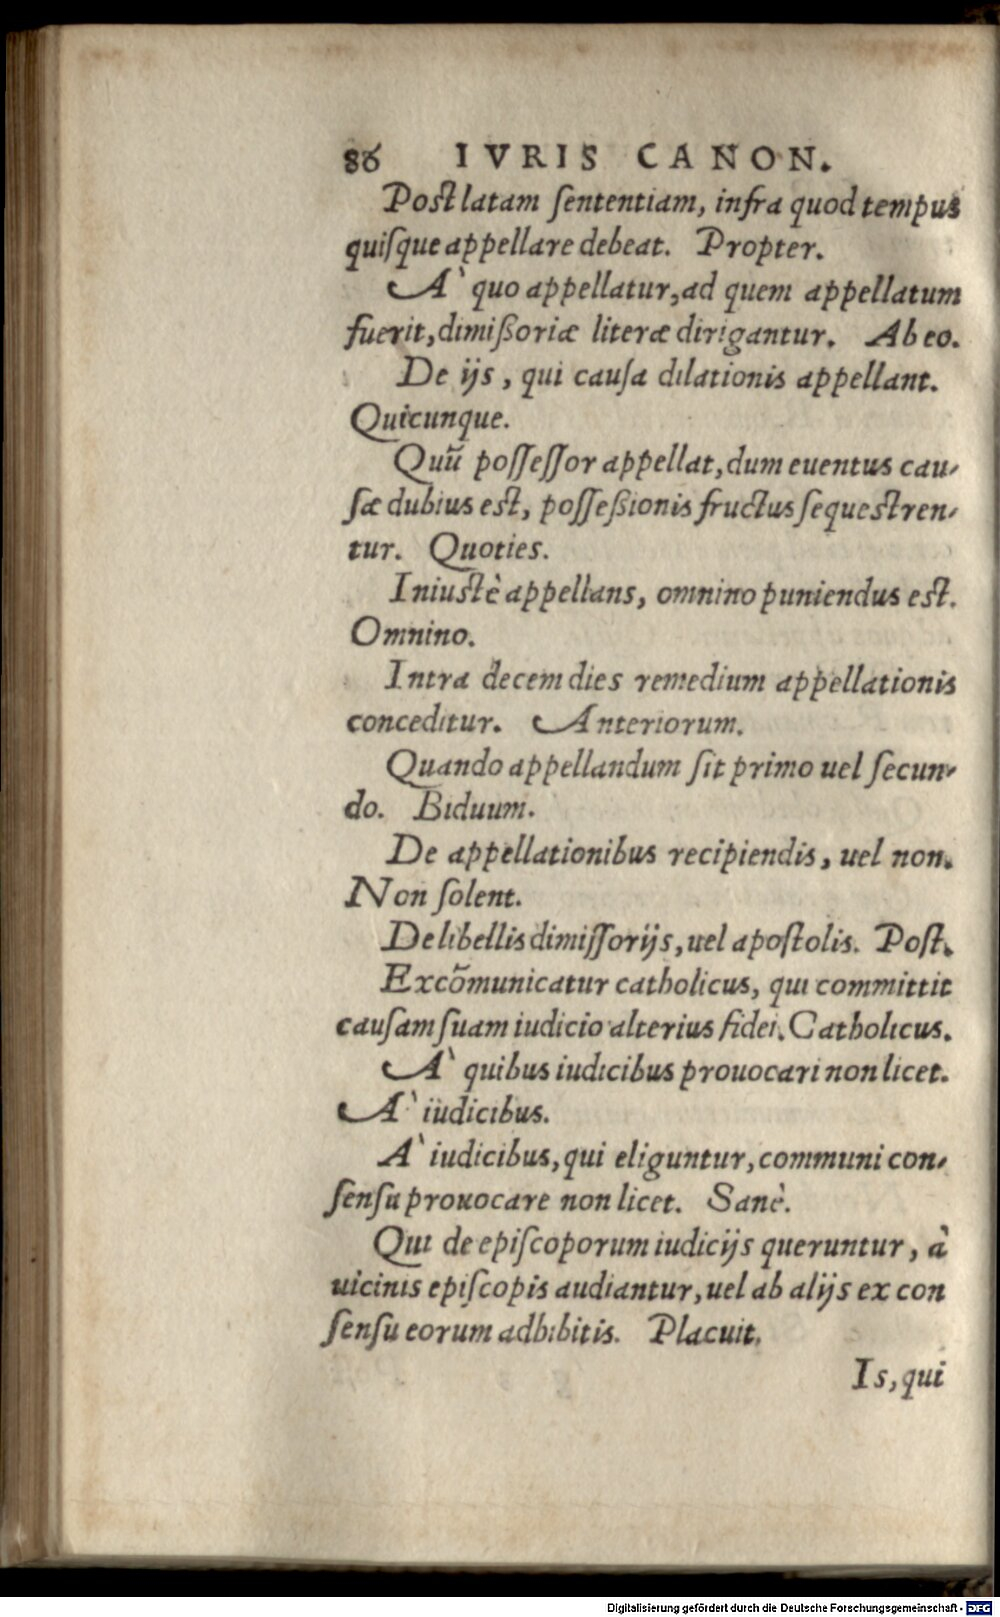 86 IVRIS CANON.
Post latam ſententiam, infra quod tempus
quiſque appellare debeat. Propter.
A` quo appellatur, ad quem appellatum
fuerit, dimißoriæ literæ dirigantur. Ab eo.
De ijs, qui cauſa dilationis appellant.
Quicunque.
Quũ poſſeſſor appellat, dum euentus cau-
ſæ dubius est, poſſeßionis fructus ſequestren-
tur. Quoties.
Iniustè appellans, omnino puniendus est.
Omnino.
Intra decem dies remedium appellationis
conceditur. Anteriorum.
Quando appellandum ſit primo uel ſecun-
do. Biduum.
De appellationibus recipiendis, uel non.
Non ſolent.
De libellis dimiſſorijs, uel apoſtolis. Poſt.
Excõmunicatur catholicus, qui committit
cauſam ſuam iudicio alterius fidei. Catholicus.
A` quibus iudicibus prouocari non licet.
A` iudicibus.
A` iudicibus, qui eliguntur, communi con-
ſenſu prouocare non licet. Sanè.
Qui de epiſcoporum iudicijs queruntur, à
uicinis epiſcopis audiantur, uel ab alijs ex con
ſenſu eorum adhibitis. Placuit.
Is, qui
Digitalisierung gefördert durch die Deutsche Forschungsgemeinschaft - DFG